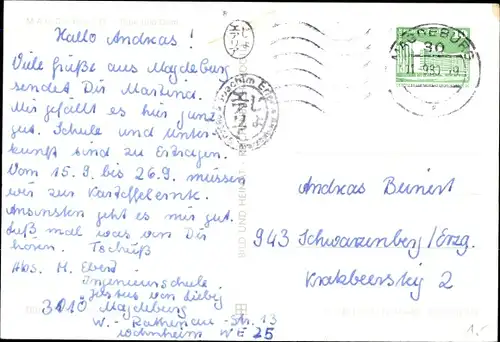 Hallo Andreas!
Viele Grüße aus Magdeburg
sendet Dir
Mir gefällt es hier ganz
gut. Schule und Unter-
kunft sind zu Ertragen.
Vom 15.9. bis 26.9. müssen
wir zur Kartoffelernte.
Ansonsten geht es mir gut.
Laß mal was von Dir
hören. Tschüß
Abs. M. Ebert
Ingenieurschule
Justus von Liebig
3010 Magdeburg
W.-Rathenau-Str. 13
Wohnheim WE 25
MAGDEBURG
30
Andreas Beinert
943 Schwarzenberg/Erzg.
Krakbeersteig 2
BILD UND HEIMAT
1.-